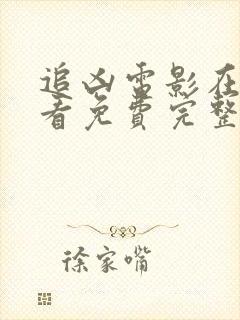 追凶雷影在
看免费完整
徐家嘴